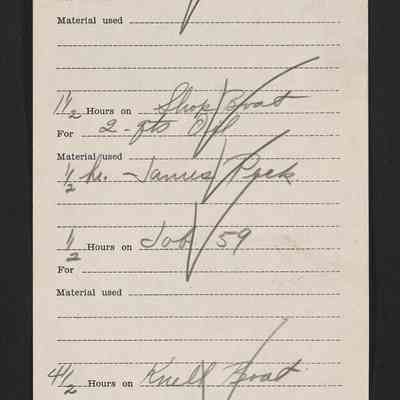 Material used
1 1/2 Hours on Shop Boat
For 2 - qts Oil
Material used
1/2 hr. - James Peck
1/2 Hours on Job 59
For
Material used
4 1/2 Hours on Knell Boat